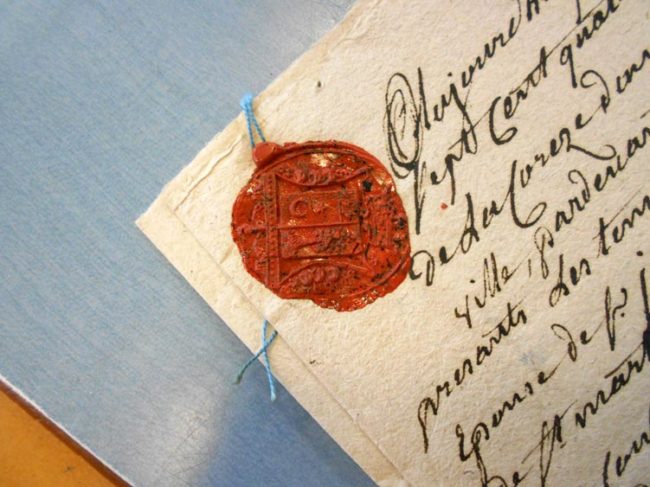 Aujourd'h
Sept Cent quat
De La Coreze dem
Ville, pardevan
presants Les tem
Epouse de Sr. j
de St mart